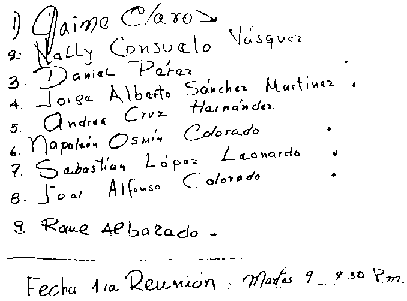 1) Jaime Claros
2. Nally Consuelo Vásquez
3. Daniel Pérez
4. Jorge Alberto Sánchez Martínez.
5. Andrea Cruz Hernández.
6. Napoleón Osmín Colorado.
7. Sebastían López Leonardo.
8. José Alfonso Colorado.
9. Rene Albarado.
Fecha 1ra Reunión: Martes 9 - 4.30 P.m.